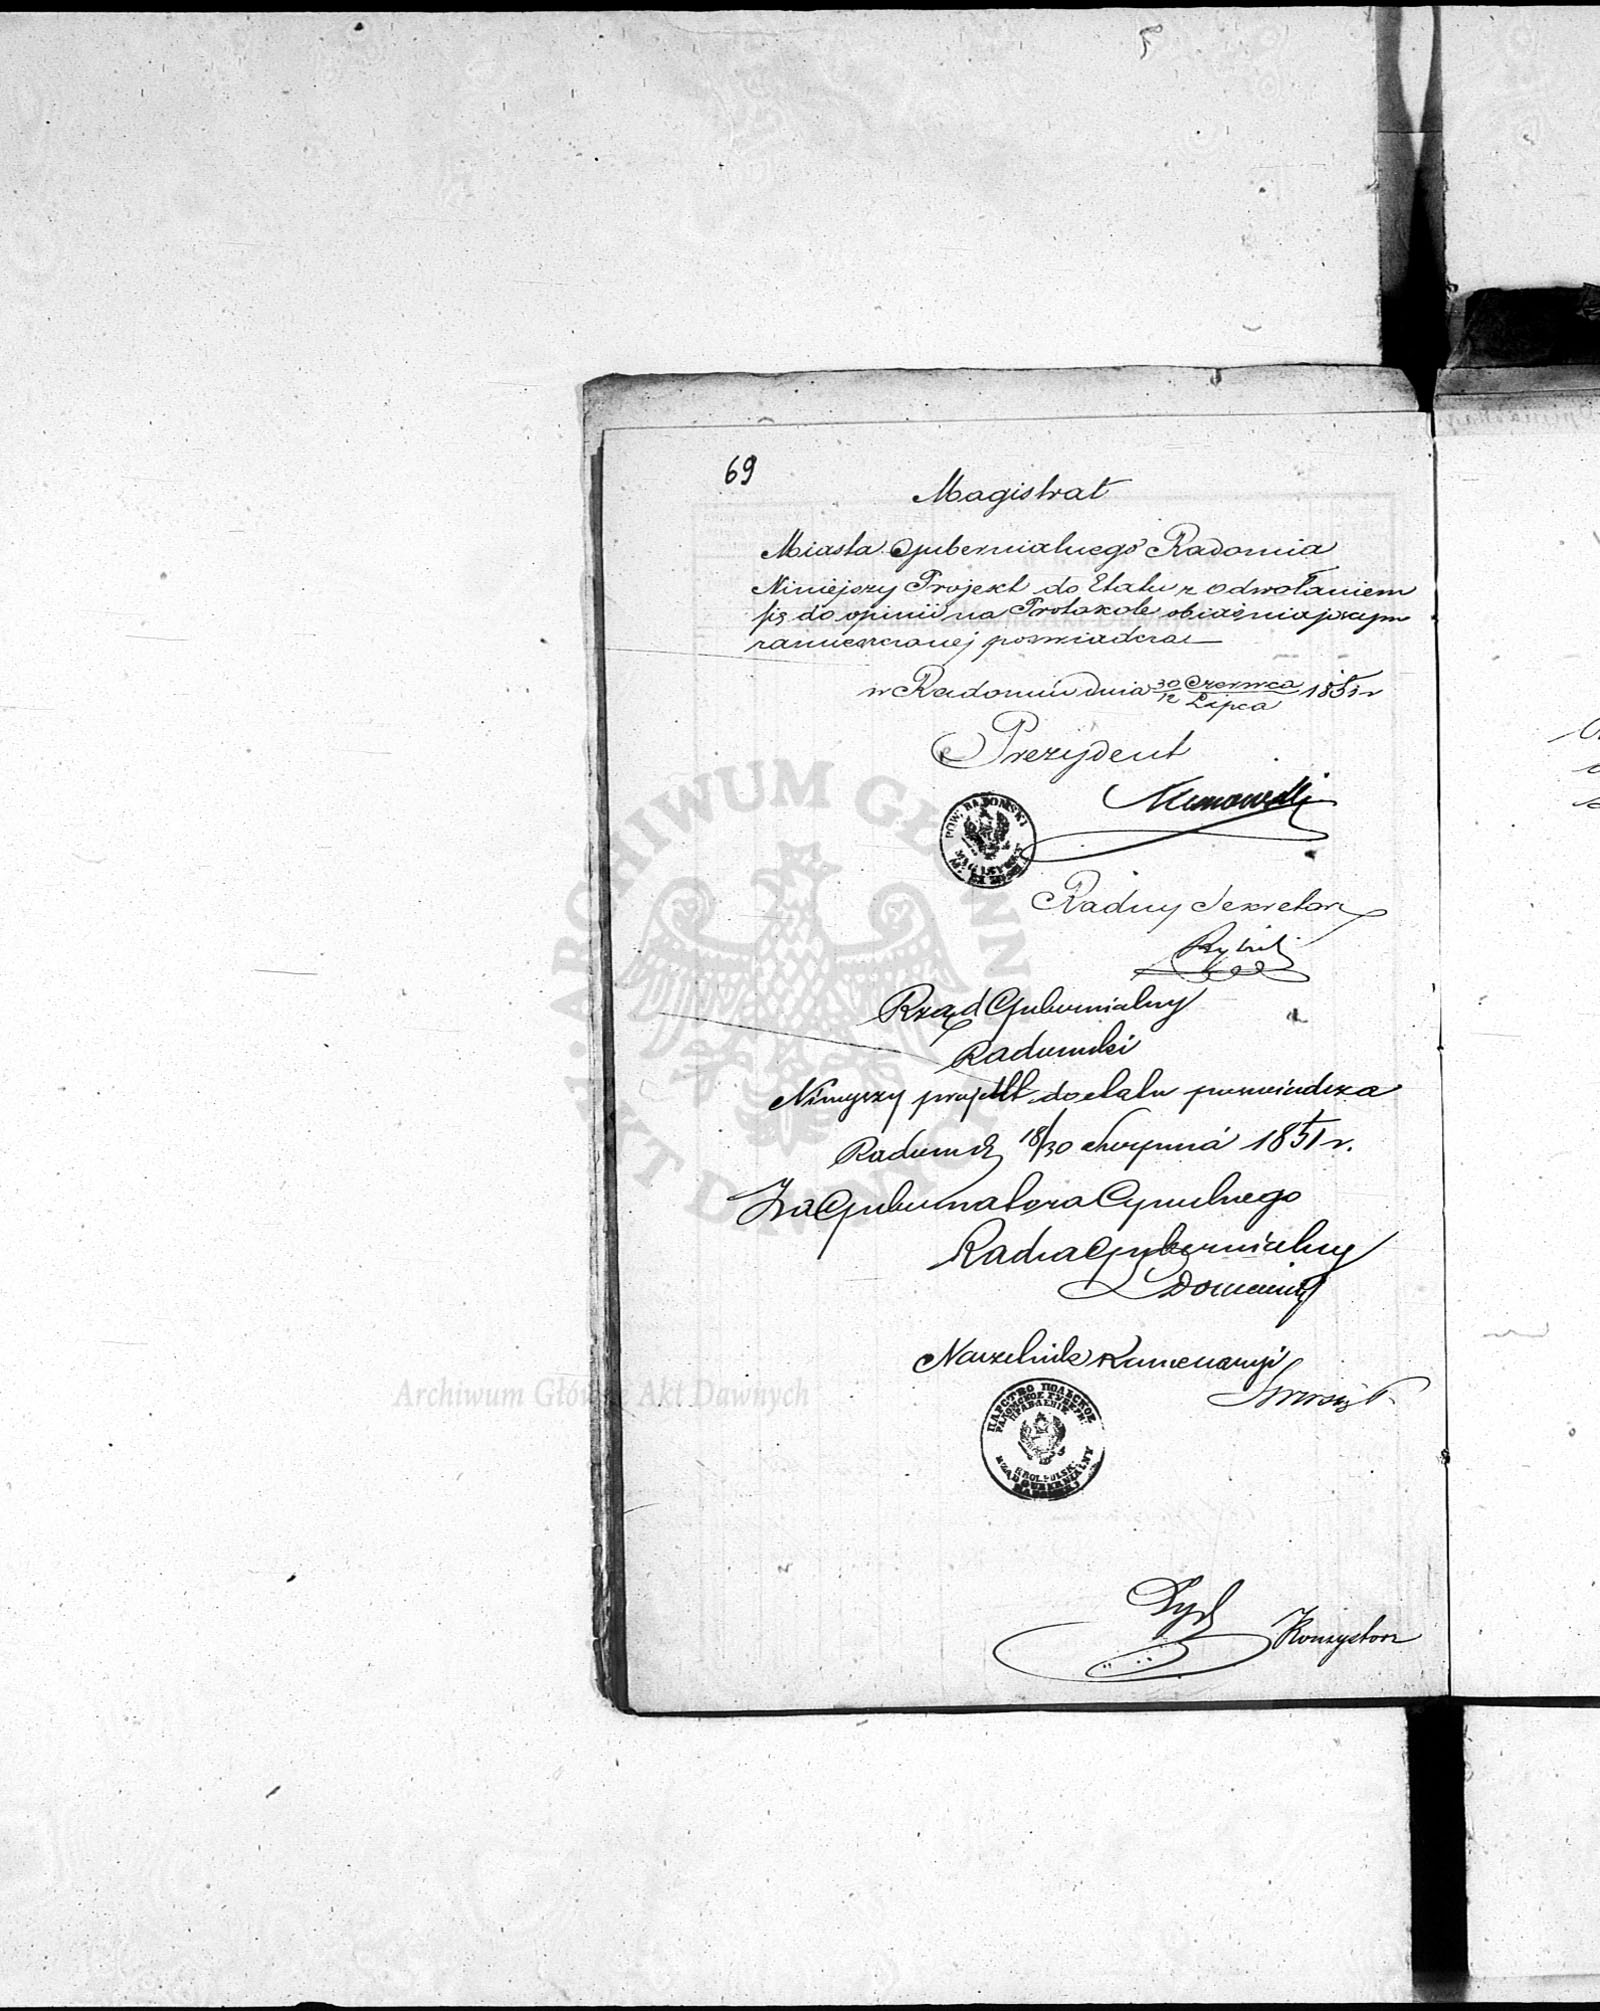 69
Magistrat
Miasta Gubernialnego Radomia
Niniejszy Projekt do Etatu z odwołaniem
się do opinii na Protokole obiaśniającym
zamieszczonej poświadcza
w Radomiu dnia 30 Czerwca / 12 Lipca 1851 r
Prezydent
POW. RADOMSKI
Radny Sekretarz
Rząd Gubernialny
Radomski
Niniejszy projekt do etatu poświadcza
Radom d 18/30 Sierpnia 1851 r.
Za Gubernatora Cywilnego
Radca Gubernialny
Naczelnik Kancellaryi
ЦАРСТВО ПОЛЬСКОЕ
РАДОМСКОЕ ГУБЕРН.
ПРАВЛЕНІЕ
KROL. POLSK.
RZĄD GUBERNIALNY
RADOMSKI
ARCHIWUM GŁÓWNE AKT DAWNYCH
Archiwum Główne Akt Dawnych